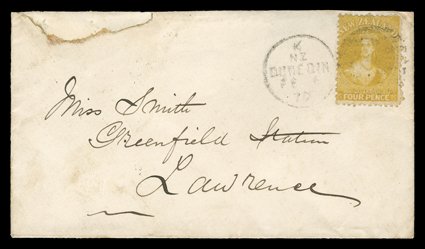 K
NZ
DUNEDIN
70
NEW ZEALAND
FOUR PENCE
Miss Smith
Greenfield Station
Lawrence